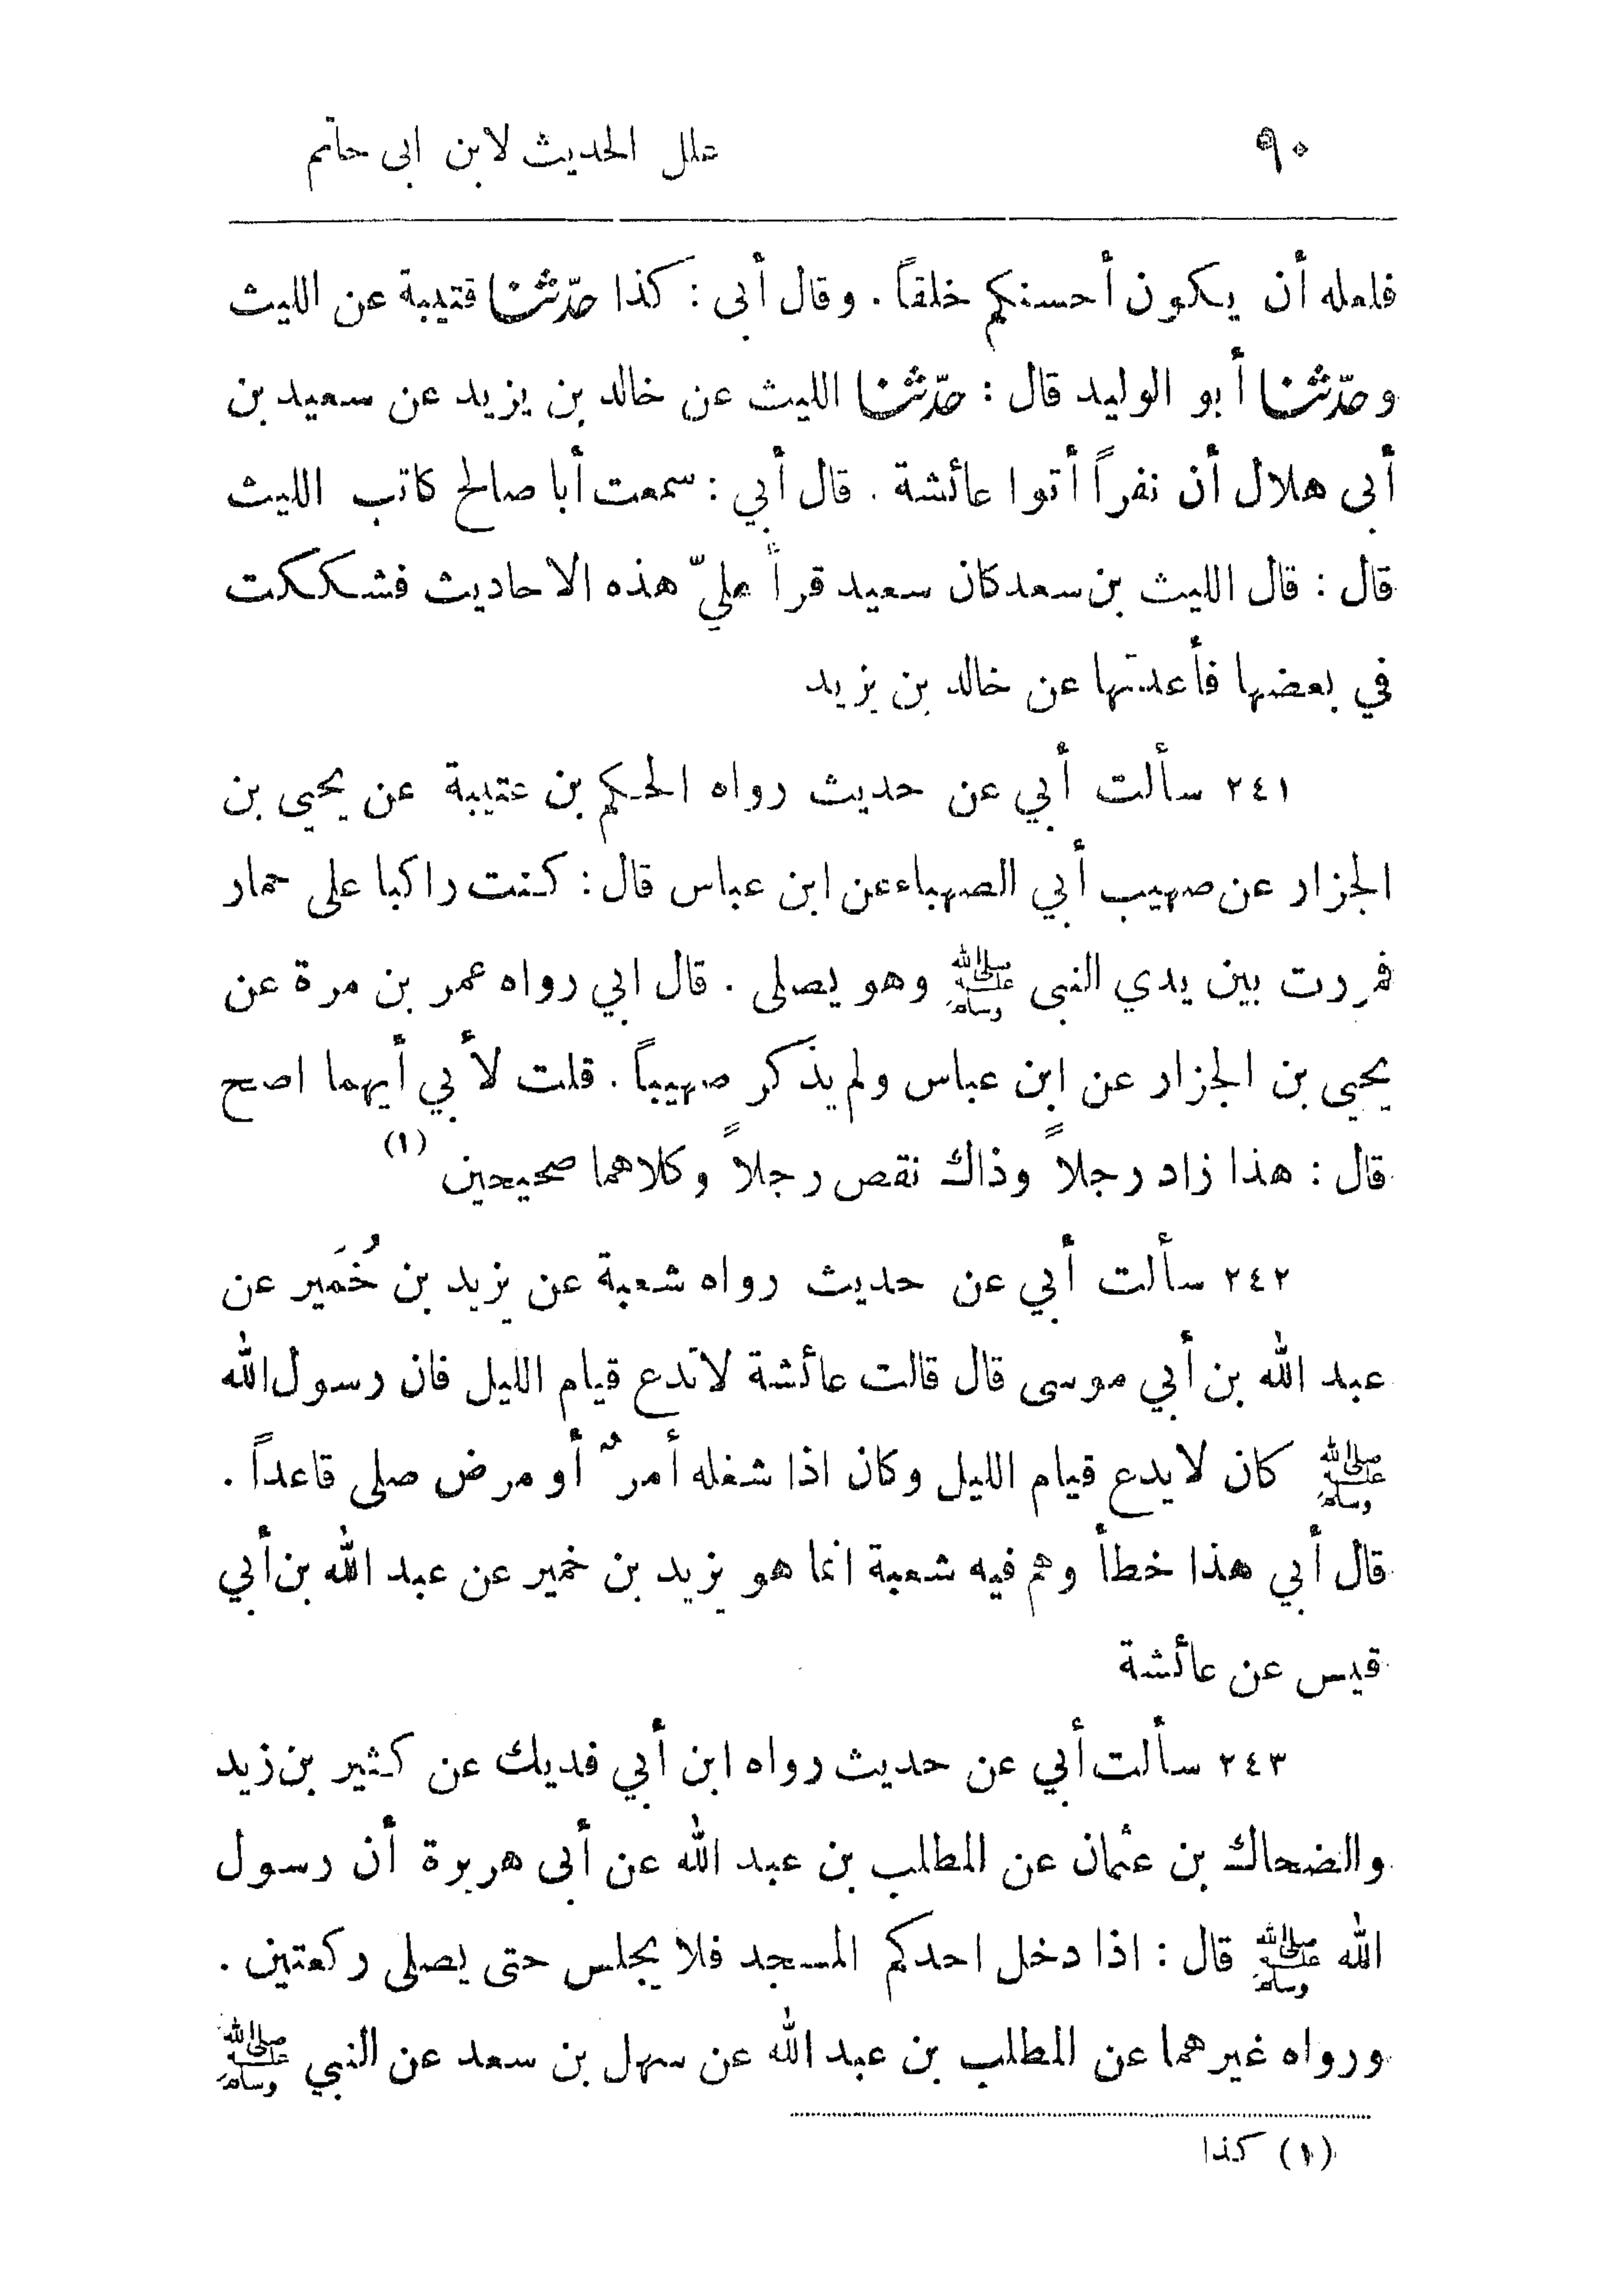 ٩٠ علل الحديث لابن ابى حاتم
فلعله أن يكون أحسنكم خلقاً . وقال أبى : كذا حدّثنا قتيبة عن الليث
وحدّثنا أبو الوليد قال : حدّثنا الليث عن خالد بن يزيد عن سعيد بن
أبى هلال أن نفراً أتوا عائشة . قال أبي : سمعت أبا صالح كاتب الليث
قال : قال الليث بن سعد كان سعيد قرأ عليّ هذه الاحاديث فشككت
في بعضها فأعدتها عن خالد بن يزيد
٢٤١ سألت أبي عن حديث رواه الحكم بن عتيبة عن يحيى بن
الجزار عن صهيب أبي الصهباء عن ابن عباس قال : كنت راكبا على حمار
فمررت بين يدي النبى ﷺ وهو يصلى . قال ابي رواه عمر بن مرة عن
يحيى بن الجزار عن ابن عباس ولم يذكر صهيباً . قلت لأبي أيهما اصح
قال : هذا زاد رجلاً وذاك نقص رجلاً وكلاهما صحيحين (١)
٢٤٢ سألت أبي عن حديث رواه شعبة عن يزيد بن خُمَير عن
عبد الله بن أبي موسى قال قالت عائشة لاتدع قيام الليل فان رسول الله
ﷺ كان لايدع قيام الليل وكان اذا شغله أمرٌ أو مرض صلى قاعداً .
قال أبي هذا خطأ وهم فيه شعبة انما هو يزيد بن خمير عن عبد الله بن أبي
قيس عن عائشة
٢٤٣ سألت أبي عن حديث رواه ابن أبي فديك عن كثير بن زيد
والضحاك بن عثمان عن المطلب بن عبد الله عن أبى هريرة أن رسول
الله ﷺ قال : اذا دخل احدكم المسجد فلا يجلس حتى يصلى ركعتين .
ورواه غيرهما عن المطلب بن عبد الله عن سهل بن سعد عن النبي ﷺ
(١) كذا